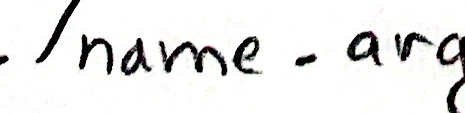 ./name - arg